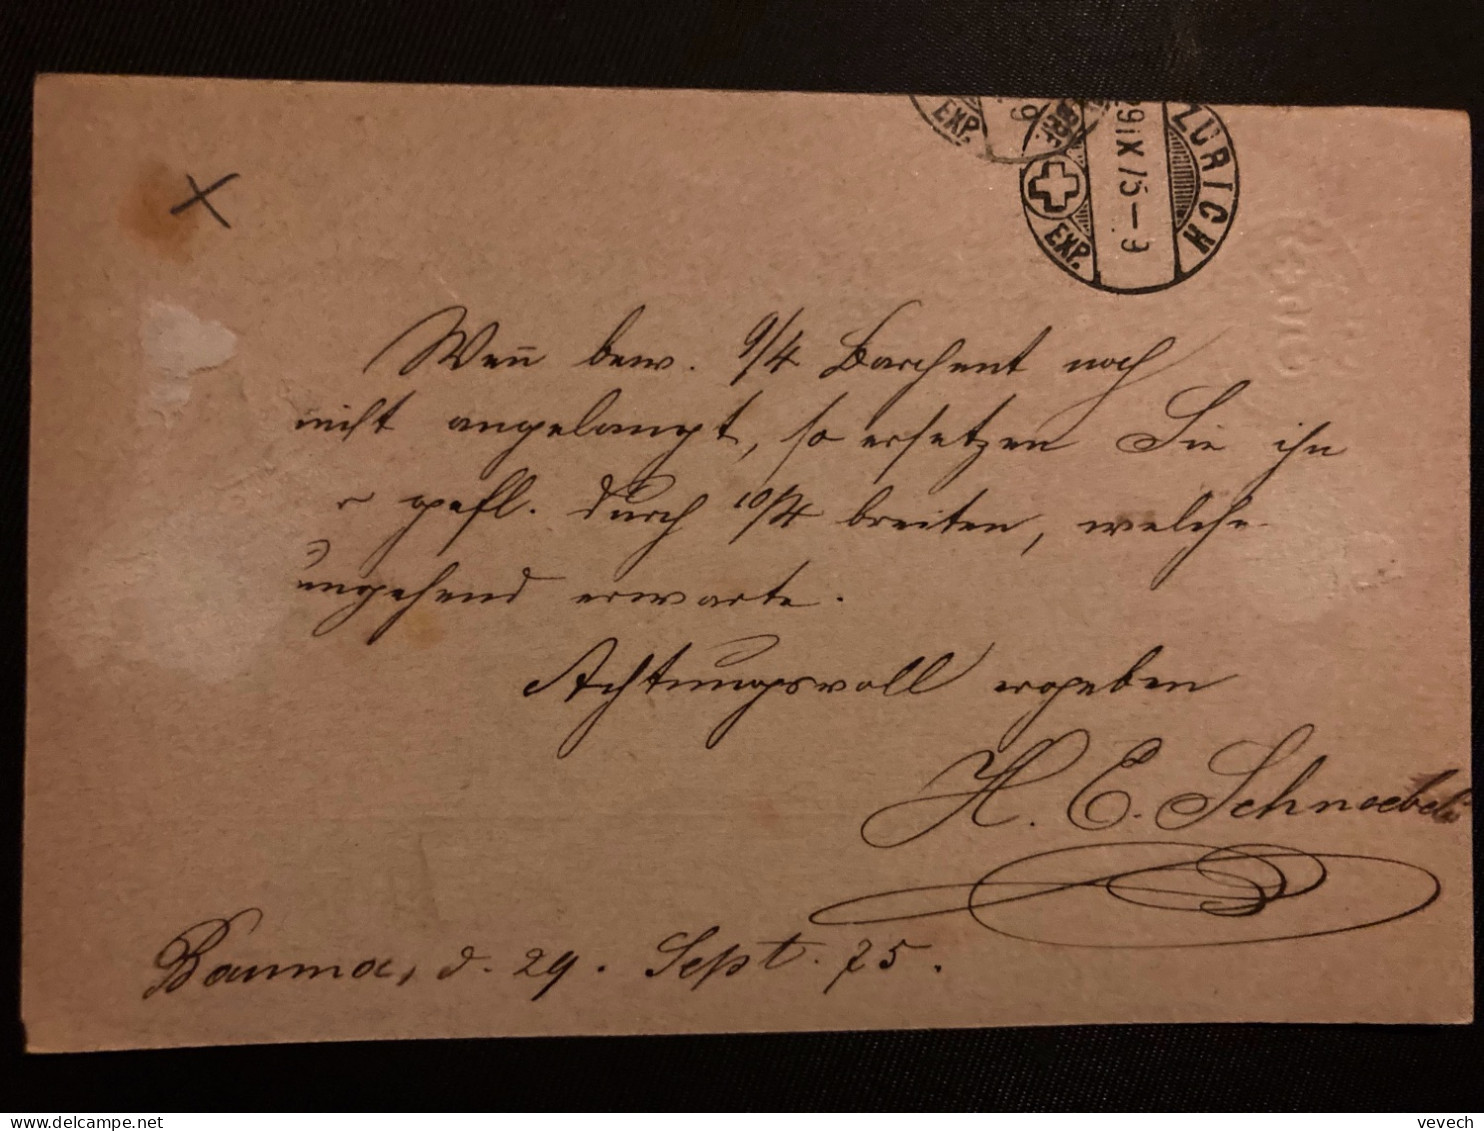 EXP.
BRF.
EXP.
29 IX 75-9
ZÜRICH
Weñ bew. 9/4 Barchent noch
nicht angelangt, so ersetzen Sie ihn
gefl. durch 10/4 breiten, welche
umgehend erwarte.
Achtungsvoll ergeben
H. E. Schnoebeli
Bauma, d. 29. Sept. 75.
delcampe.net
vevech